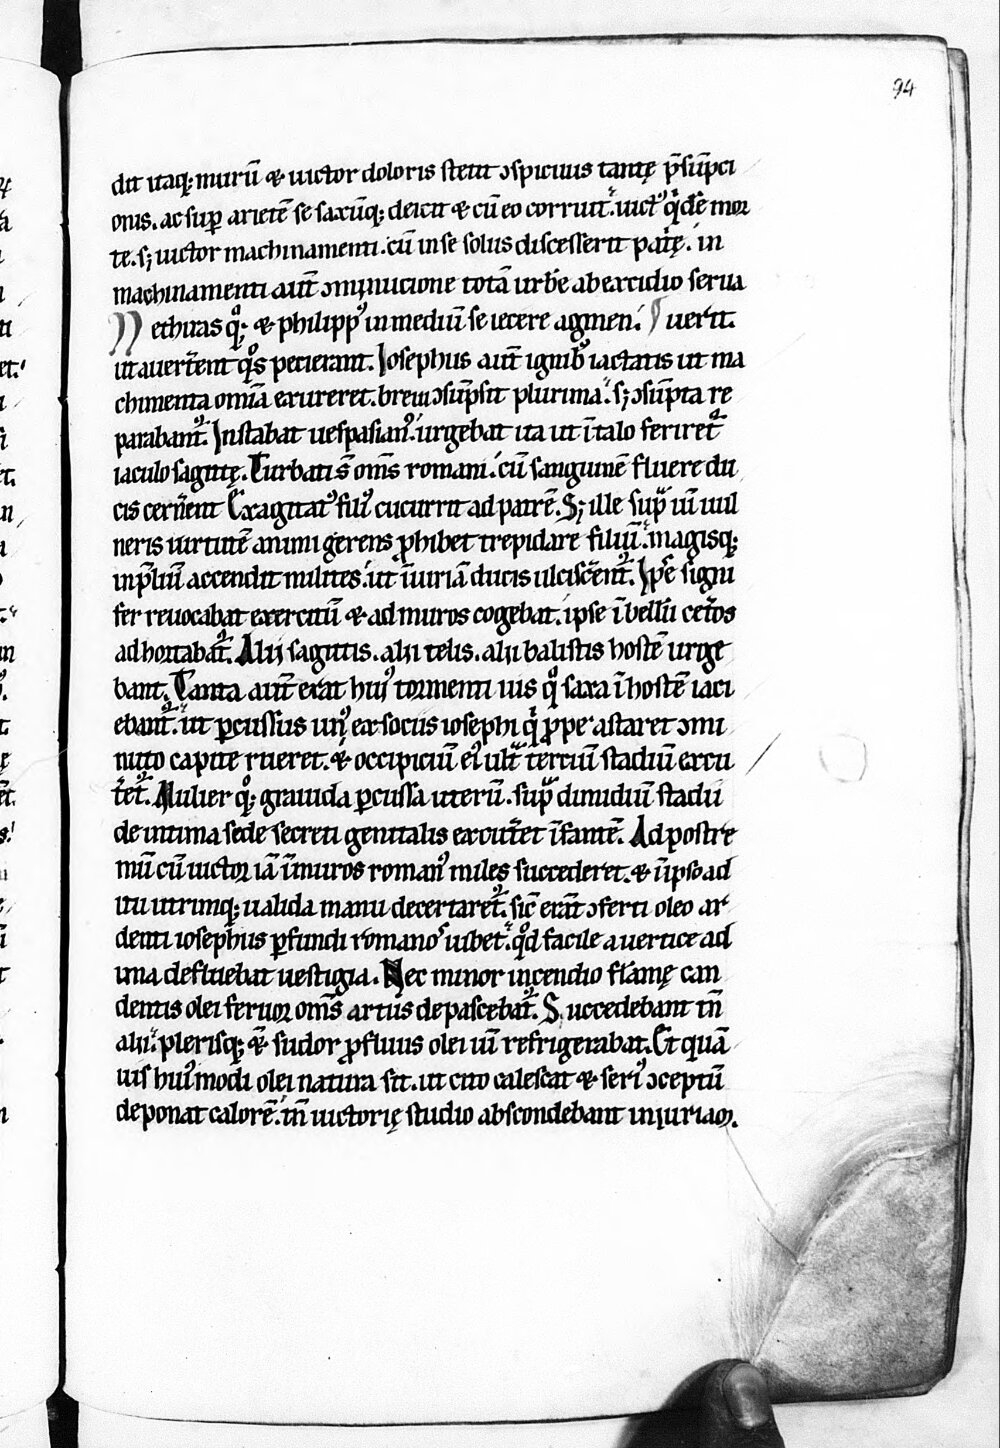 94
dit itaq; murū & uictor doloris stetit ↄspicuus tantę p̄sūpci
onis. ac sup̱ arietē se saxūq; deicit & cū eo corruit. uict᾿ qͥdē mor
te. s; uictor machinamenti. cū in se solus discesserit pat̄ię. in
machinamenti aut̄ ↄminucione totā urbē ab excidio serua
Nethiras qͦ; & philipp᾿ in mediū se iecere agmen. uerit.
ut auert̄ent qͦs petierant. Iosephus aut̄ ignib᾿ iactatis ut ma
chinenta omīa exureret. breui ↄsūpsit plurima. s; ↄsūpta re
parabant᷑. Instabat uespasian᾿. urgebat ita ut ī talo feriret᷑
iaculo sagittę. Turbati s̄ om̄s romani. cū sanguinē fluere du
cis cern̄ent Exagitat᾿ fili᾿ cucurrit ad patrē. S; ille sup̱ uī uul
neris uirtutē animi gerens ꝓhibet trepidare filiū. magisq;
in p̄liū accendit milites. ut īiuriā ducis ulcisc̄ent᷑. Ip̄e signi
fer reuocabat exercitū & ad muros cogebat. ipse ī bellū cet̄os
adhortabat᷑. Alii sagittis. alii telis. alii balistis hostē urge
bant. Tanta aut̄ erat hui᾿ tormenti uis qͦ saxa ī hostē iaci
ebant᷑. ut p̱cussus un᾿ ex sociis iosephi qͥ ꝓpe astaret ↄmi
nuto capite rueret. & occipiciū ei᾿ ultͣ terciū stadiū excu
t̄et᷑. Mulier qͦ; grauida p̱cussa uterū. supͣ dimidiū stadii
de intima sede secreti genitalis excut̄et īfantē. Ad postre
mū cū uictor iā ī muros roman᾿ miles succederet. & ī ipso ad
itu utrimq; ualida manu decertaret᷑. sic̄ erāt ↄferti oleo ar
denti iosephus p̱fundi romanos iubet. qͦd facile a uertice ad
ima defluebat uestigia. Nec minor incendio flāmę can
dentis olei feruor om̄s artus depascebat᷑. Succedebant tn̄
alii. plerisq; & sudor ꝓfluus olei uī refrigerabat. Et quā
uis hui᾿modi olei natura sit. ut cito calescat & seri᾿ ↄceptū
deponat calorē. tn̄ uictorię studio abscondebant iniuriam.